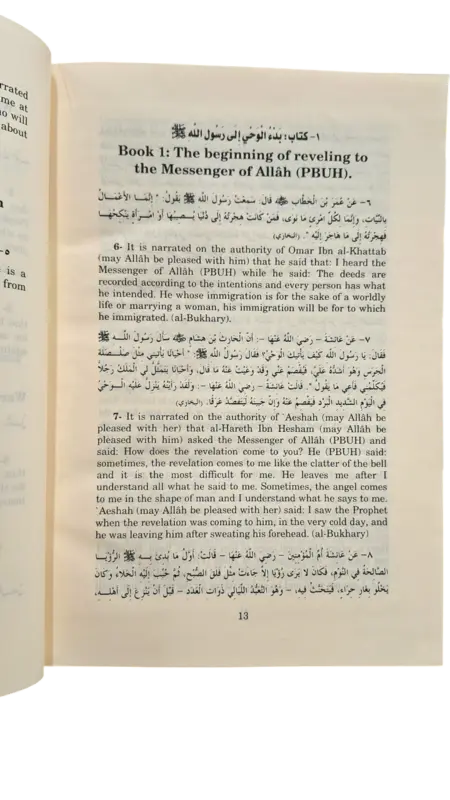 rrated
me at
o will
about
n
٥-
is a
from
١- كتاب: بَدْءُ الْوَحْيِ إِلَى رَسُولِ اللَّهِ ﷺ
Book 1: The beginning of reveling to
the Messenger of Allâh (PBUH).
٦- عَنْ عُمَرَ بْنِ الْخَطَّابِ ﷺ قَالَ: سَمِعْتُ رَسُولَ اللَّهِ ﷺ يَقُولُ: " إِنَّمَا الأَعْمَالُ
بِالنِّيَّاتِ، وَإِنَّمَا لِكُلِّ امْرِئٍ مَا نَوَى، فَمَنْ كَانَتْ هِجْرَتُهُ إِلَى دُنْيَا يُصِيبُهَا أَوْ امْرَأَةٍ يَنْكِحُهَا
فَهِجْرَتُهُ إِلَى مَا هَاجَرَ إِلَيْهِ ". (البخاري)
6- It is narrated on the authority of Omar Ibn al-Khattab
(may Allâh be pleased with him) that he said that: I heard the
Messenger of Allâh (PBUH) while he said: The deeds are
recorded according to the intentions and every person has what
he intended. He whose immigration is for the sake of a worldly
life or marrying a woman, his immigration will be for to which
he immigrated. (al-Bukhary).
٧- عَنْ عَائِشَةَ – رَضِيَ اللَّهُ عَنْهَا –: أَنَّ الْحَارِثَ بْنَ هِشَامٍ سَأَلَ رَسُولَ اللَّهِ
فَقَالَ: يَا رَسُولَ اللَّهِ كَيْفَ يَأْتِيكَ الْوَحْيُ؟ فَقَالَ رَسُولُ اللَّهِ ﷺ: " أَحْيَانًا يَأْتِينِي مِثْلَ صَلْصَلَةِ
الْجَرَسِ وَهُوَ أَشَدُّهُ عَلَيَّ، فَيُفْصَمُ عَنِّي وَقَدْ وَعَيْتُ عَنْهُ مَا قَالَ، وَأَحْيَانًا يَتَمَثَّلُ لِي الْمَلَكُ رَجُلاً
فَيُكَلِّمُنِي فَأَعِي مَا يَقُولُ ". قَالَتْ عَائِشَةُ – رَضِيَ اللَّهُ عَنْهَا –: وَلَقَدْ رَأَيْتُهُ يَنْزِلُ عَلَيْهِ الْوَحْيُ
فِي الْيَوْمِ الشَّدِيدِ الْبَرْدِ فَيَفْصِمُ عَنْهُ وَإِنَّ جَبِينَهُ لَيَتَفَصَّدُ عَرَقًا. (البخاري)
7- It is narrated on the authority of `Aeshah (may Allâh be
pleased with her) that al-Hareth Ibn Hesham (may Allâh be
pleased with him) asked the Messenger of Allâh (PBUH) and
said: How does the revelation come to you? He (PBUH) said:
sometimes, the revelation comes to me like the clatter of the bell
and it is the most difficult for me. He leaves me after I
understand all what he said to me. Sometimes, the angel comes
to me in the shape of man and I understand what he says to me.
`Aeshah (may Allâh be pleased with her) said: I saw the Prophet
when the revelation was coming to him, in the very cold day, and
he was leaving him after sweating his forehead. (al-Bukhary)
٨- عَنْ عَائِشَةَ أُمِّ الْمُؤْمِنِينَ – رَضِيَ اللَّهُ عَنْهَا – قَالَتْ: أَوَّلُ مَا بُدِئَ بِهِ ﷺ الرُّؤْيَا
الصَّالِحَةُ فِي النَّوْمِ، فَكَانَ لاَ يَرَى رُؤْيَا إِلاَّ جَاءَتْ مِثْلَ فَلَقِ الصُّبْحِ، ثُمَّ حُبِّبَ إِلَيْهِ الْخَلاَءُ وَكَانَ
يَخْلُو بِغَارِ حِرَاءٍ، فَيَتَحَنَّثُ فِيهِ، – وَهُوَ التَّعَبُّدُ اللَّيَالِيَ ذَوَاتِ الْعَدَدِ – قَبْلَ أَنْ يَنْزِعَ إِلَى أَهْلِهِ،
13